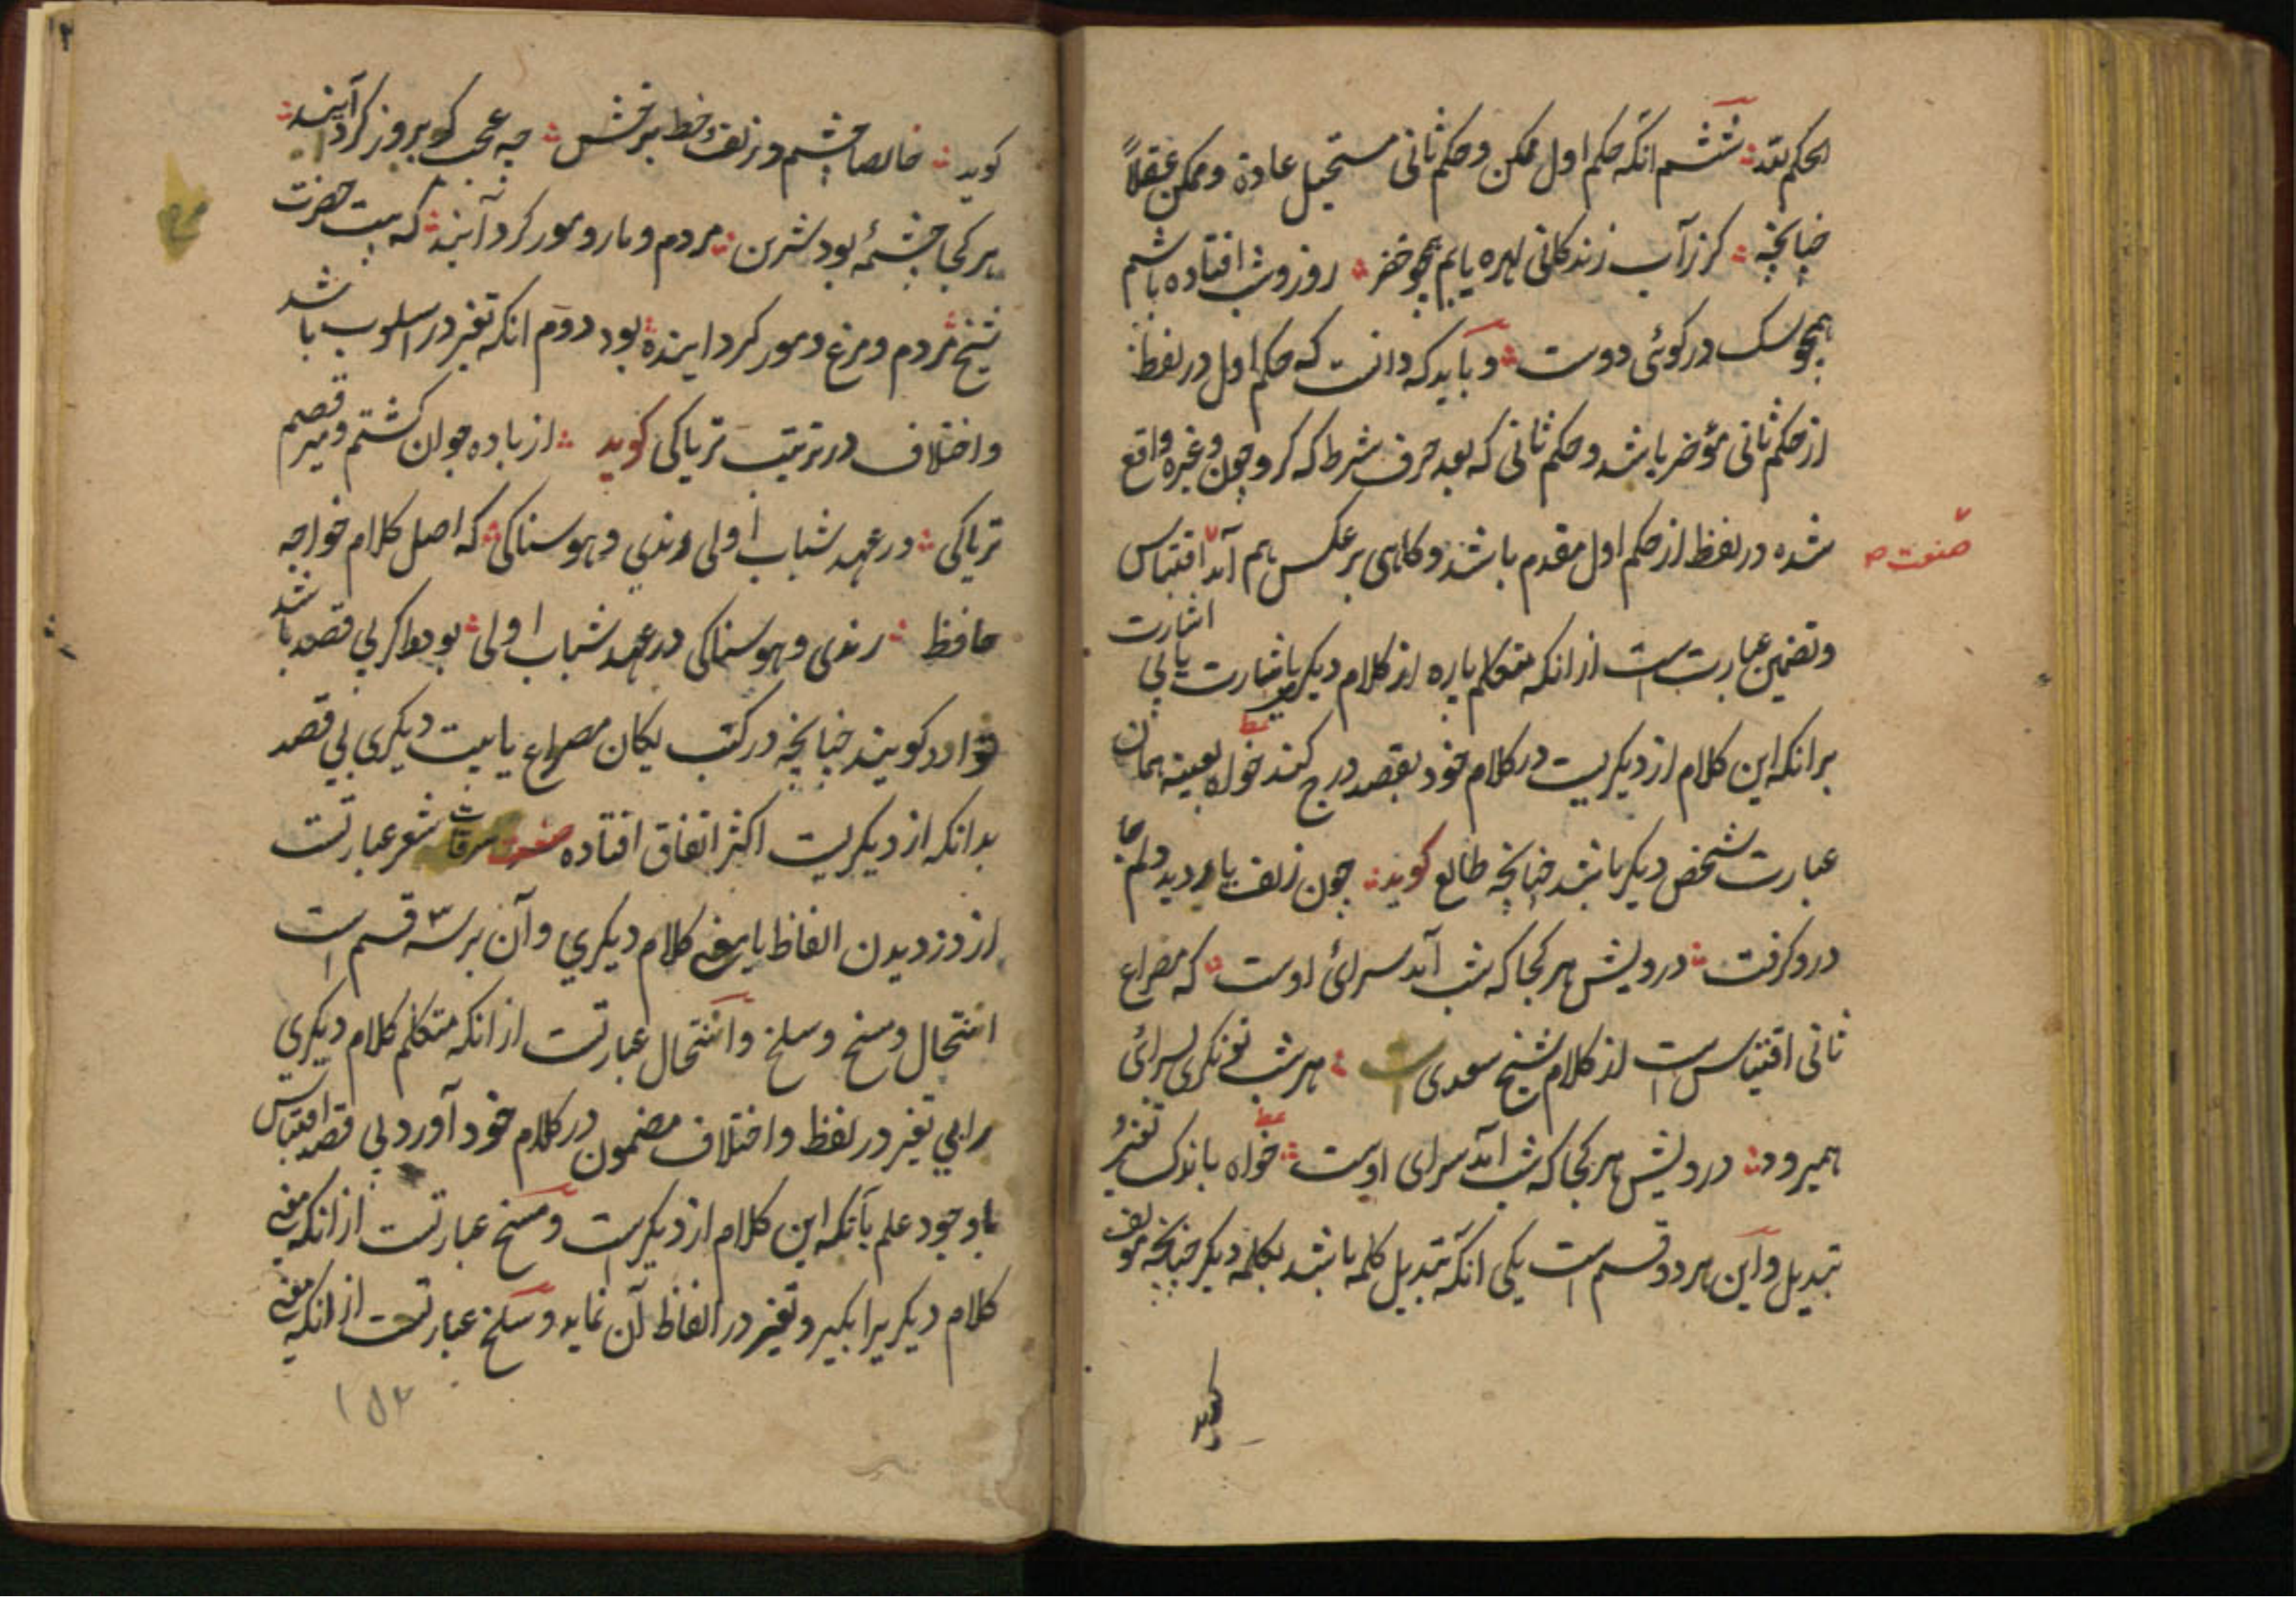 ششم انکه حکم اول ممکن و حکم ثانی مستحیل عادة و ممکن عقلاً
چنانچه کرز آب زندکانی بهره یابم همچو خضر روز و شب افتاده باشم
همچو سک در کوئی دوست و باید که دانست که حکم اول در لفظ
از حکم ثانی مؤخر باشد و حکم ثانی که بعد حرف شرط که کر و چون و غیره واقع
شده در لفظ از حکم اول مقدم باشد و کاهی بر عکس هم آمد اقتباس
صنعت
و تضمین عبارتست از انکه متکلم پاره از کلام دیکر باشارت یا بی اشارت
برانکه این کلام از دیکریست در کلام خود بقصد درج کند خواه بعینه همان
عبارت شخص دیکر باشد چنانچه طالع کوید چون زلف یار دید دلم جا
درو کرفت درویش هر کجا که شب آمد سرائ اوست که مصراع
ثانی اقتباس است از کلام شیخ سعدی است هر شب تونکری بسرائی
همیرود درویش هر کجا که شب آمد سرای اوست خواه باندک تغیر و
تبدیل و این هر دو قسم است یکی انکه تبدیل کلمه باشد بکلمه دیکر چنانچه مؤلف
کوید
کوید خالصا چشم و زلف و خط برخش چه عجب کوبروز کرد آیند
هر کجا چشمهٔ بود شیرین مردم و مار و مور کرد آیند که بیت حضرت
شیخ مردم و مرغ و مور کرد ایند بود دوم انکه تغیر در اسلوب باشد
و اختلاف در ترتیب تریاکی کوید از باده جوان کشتم و میر قصم
تریاکی در عهد شباب اولی رندی و هوسناکی که اصل کلام خواجه
حافظ رندی و هوسناکی در عهد شباب اولی بود و اکر بی قصد باشد
توارد کویند چنانچه در کتب یکان مصراع یا بیت دیکری بی قصد
بدانکه از دیکریست اکثر اتفاق افتاده صنعت سرقات شعر عبارتست
از دزدیدن الفاظ یا معنی کلام دیکری و آن بر سه قسم است
انتحال و مسخ و سلخ و انتحال عبارتست از انکه متکلم کلام دیکری
را بی تغیر در لفظ و اختلاف مضمون در کلام خود آورد بی قصد اقتباس
باوجود علم بآنکه این کلام از دیکریست و مسخ عبارتست از انکه معنی
کلام دیکریرا بکیر و تغیر در الفاظ آن نماید و سلخ عبارتست از انکه معنی